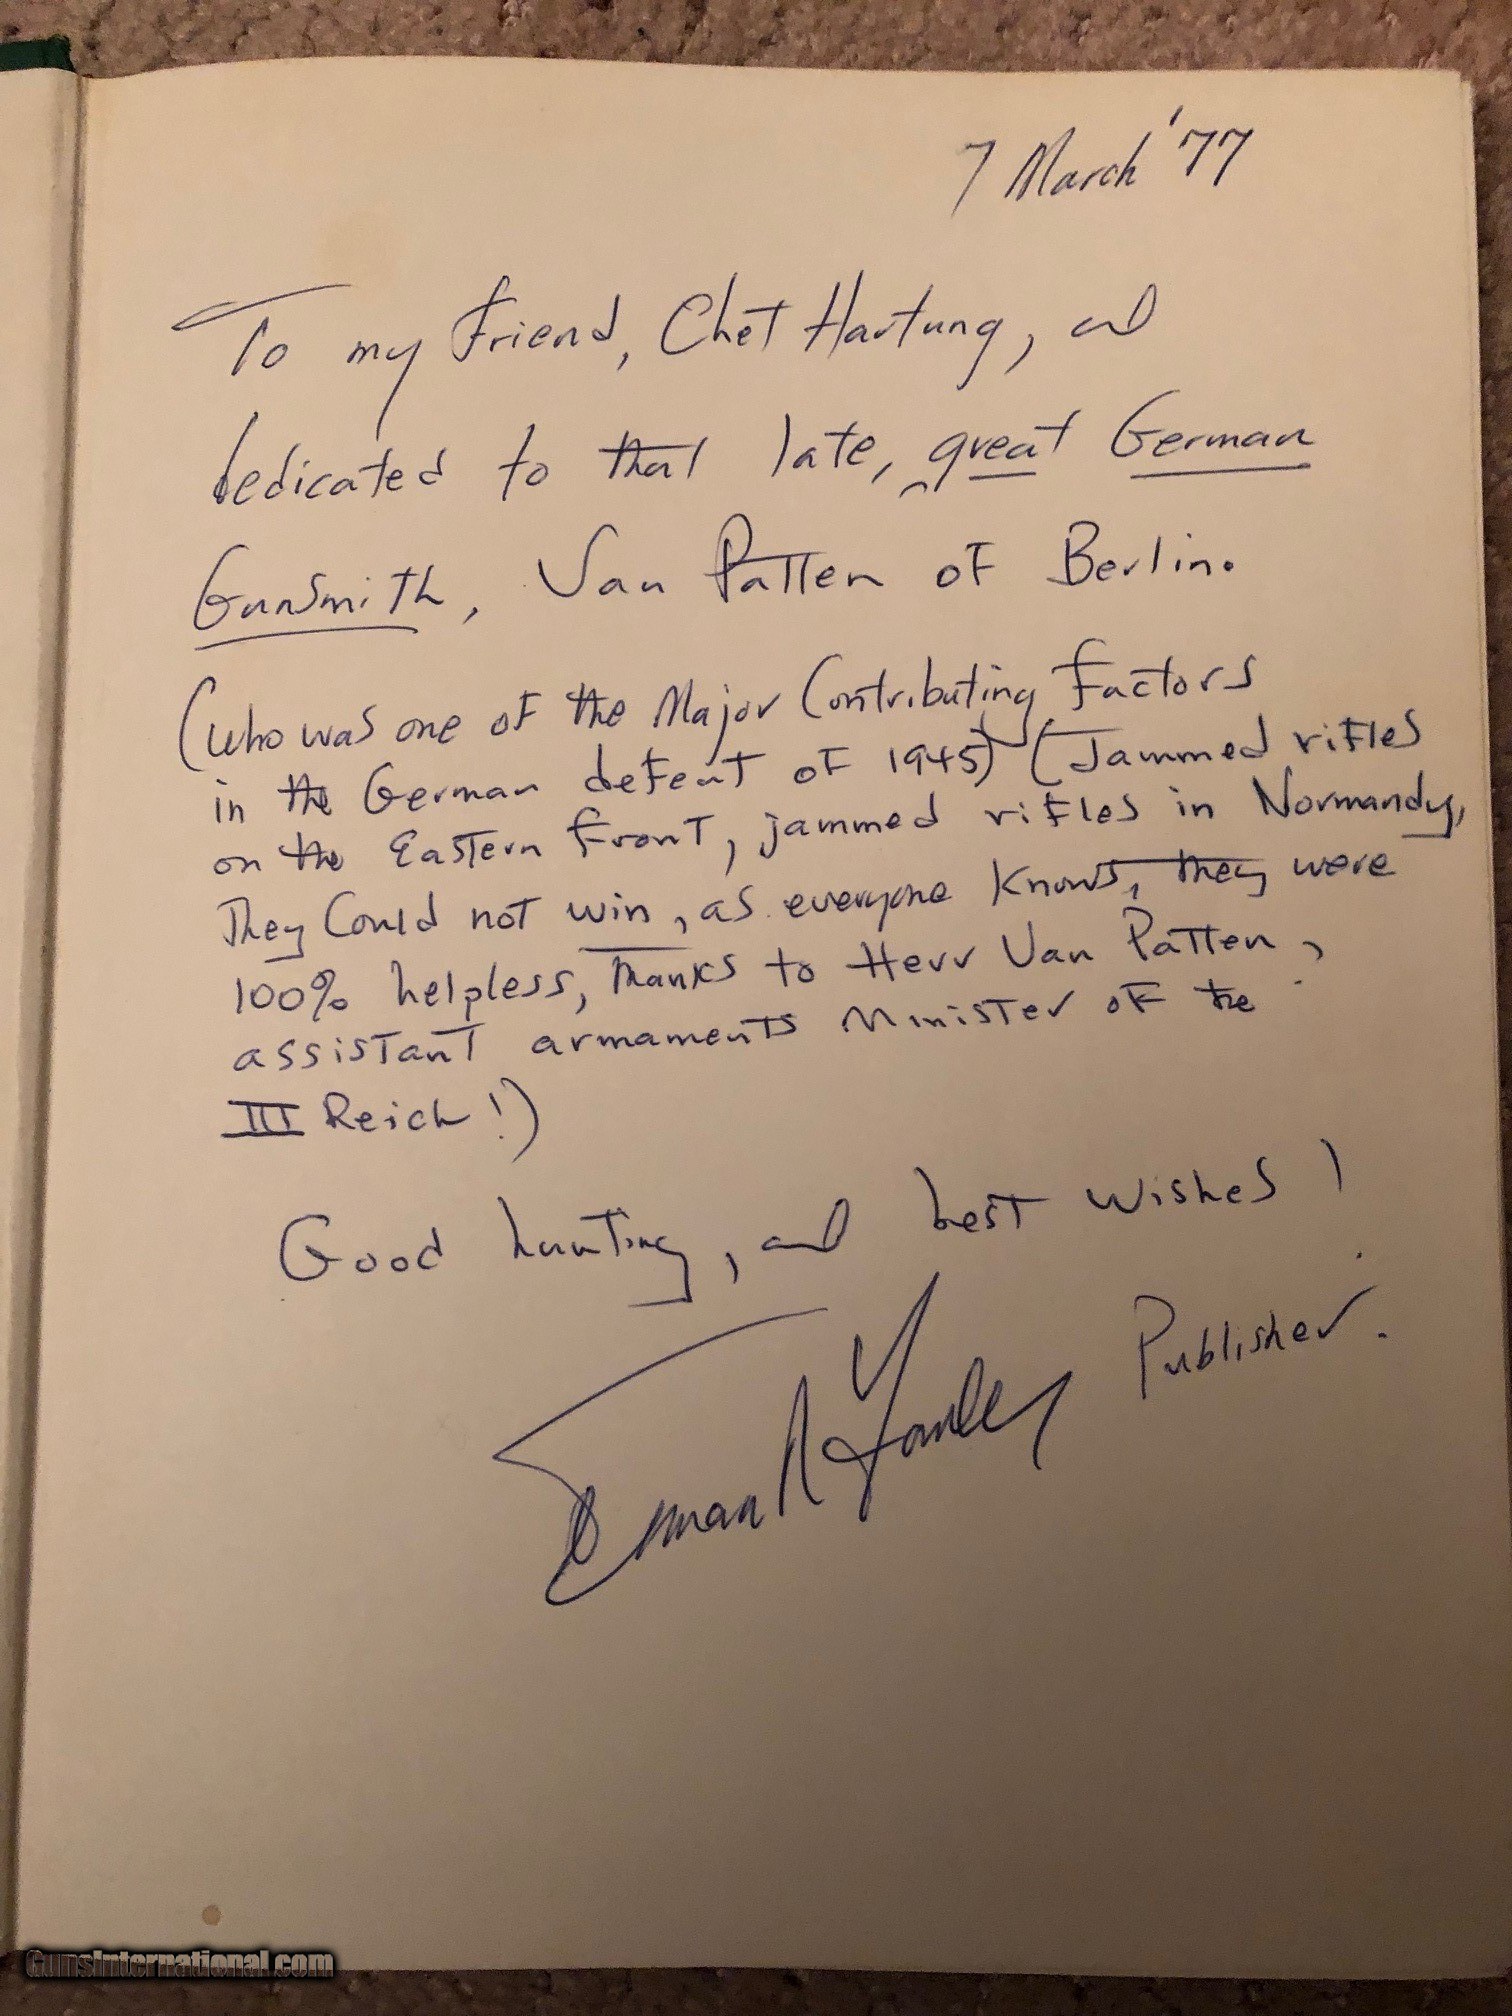 7 March '77
To my friend, Chet Hartung, and
dedicated to that late, great German
Gunsmith, Van Patten of Berlin.
(who was one of the Major Contributing factors
in the German defeat of 1945) (Jammed rifles
on the Eastern front, jammed rifles in Normandy,
They Could not win, as everyone knows, they were
100% helpless, Thanks to Herr Van Patten,
assistant armaments Minister of the
III Reich!)
Good hunting, and best wishes!
Publisher.
GunsInternational.com